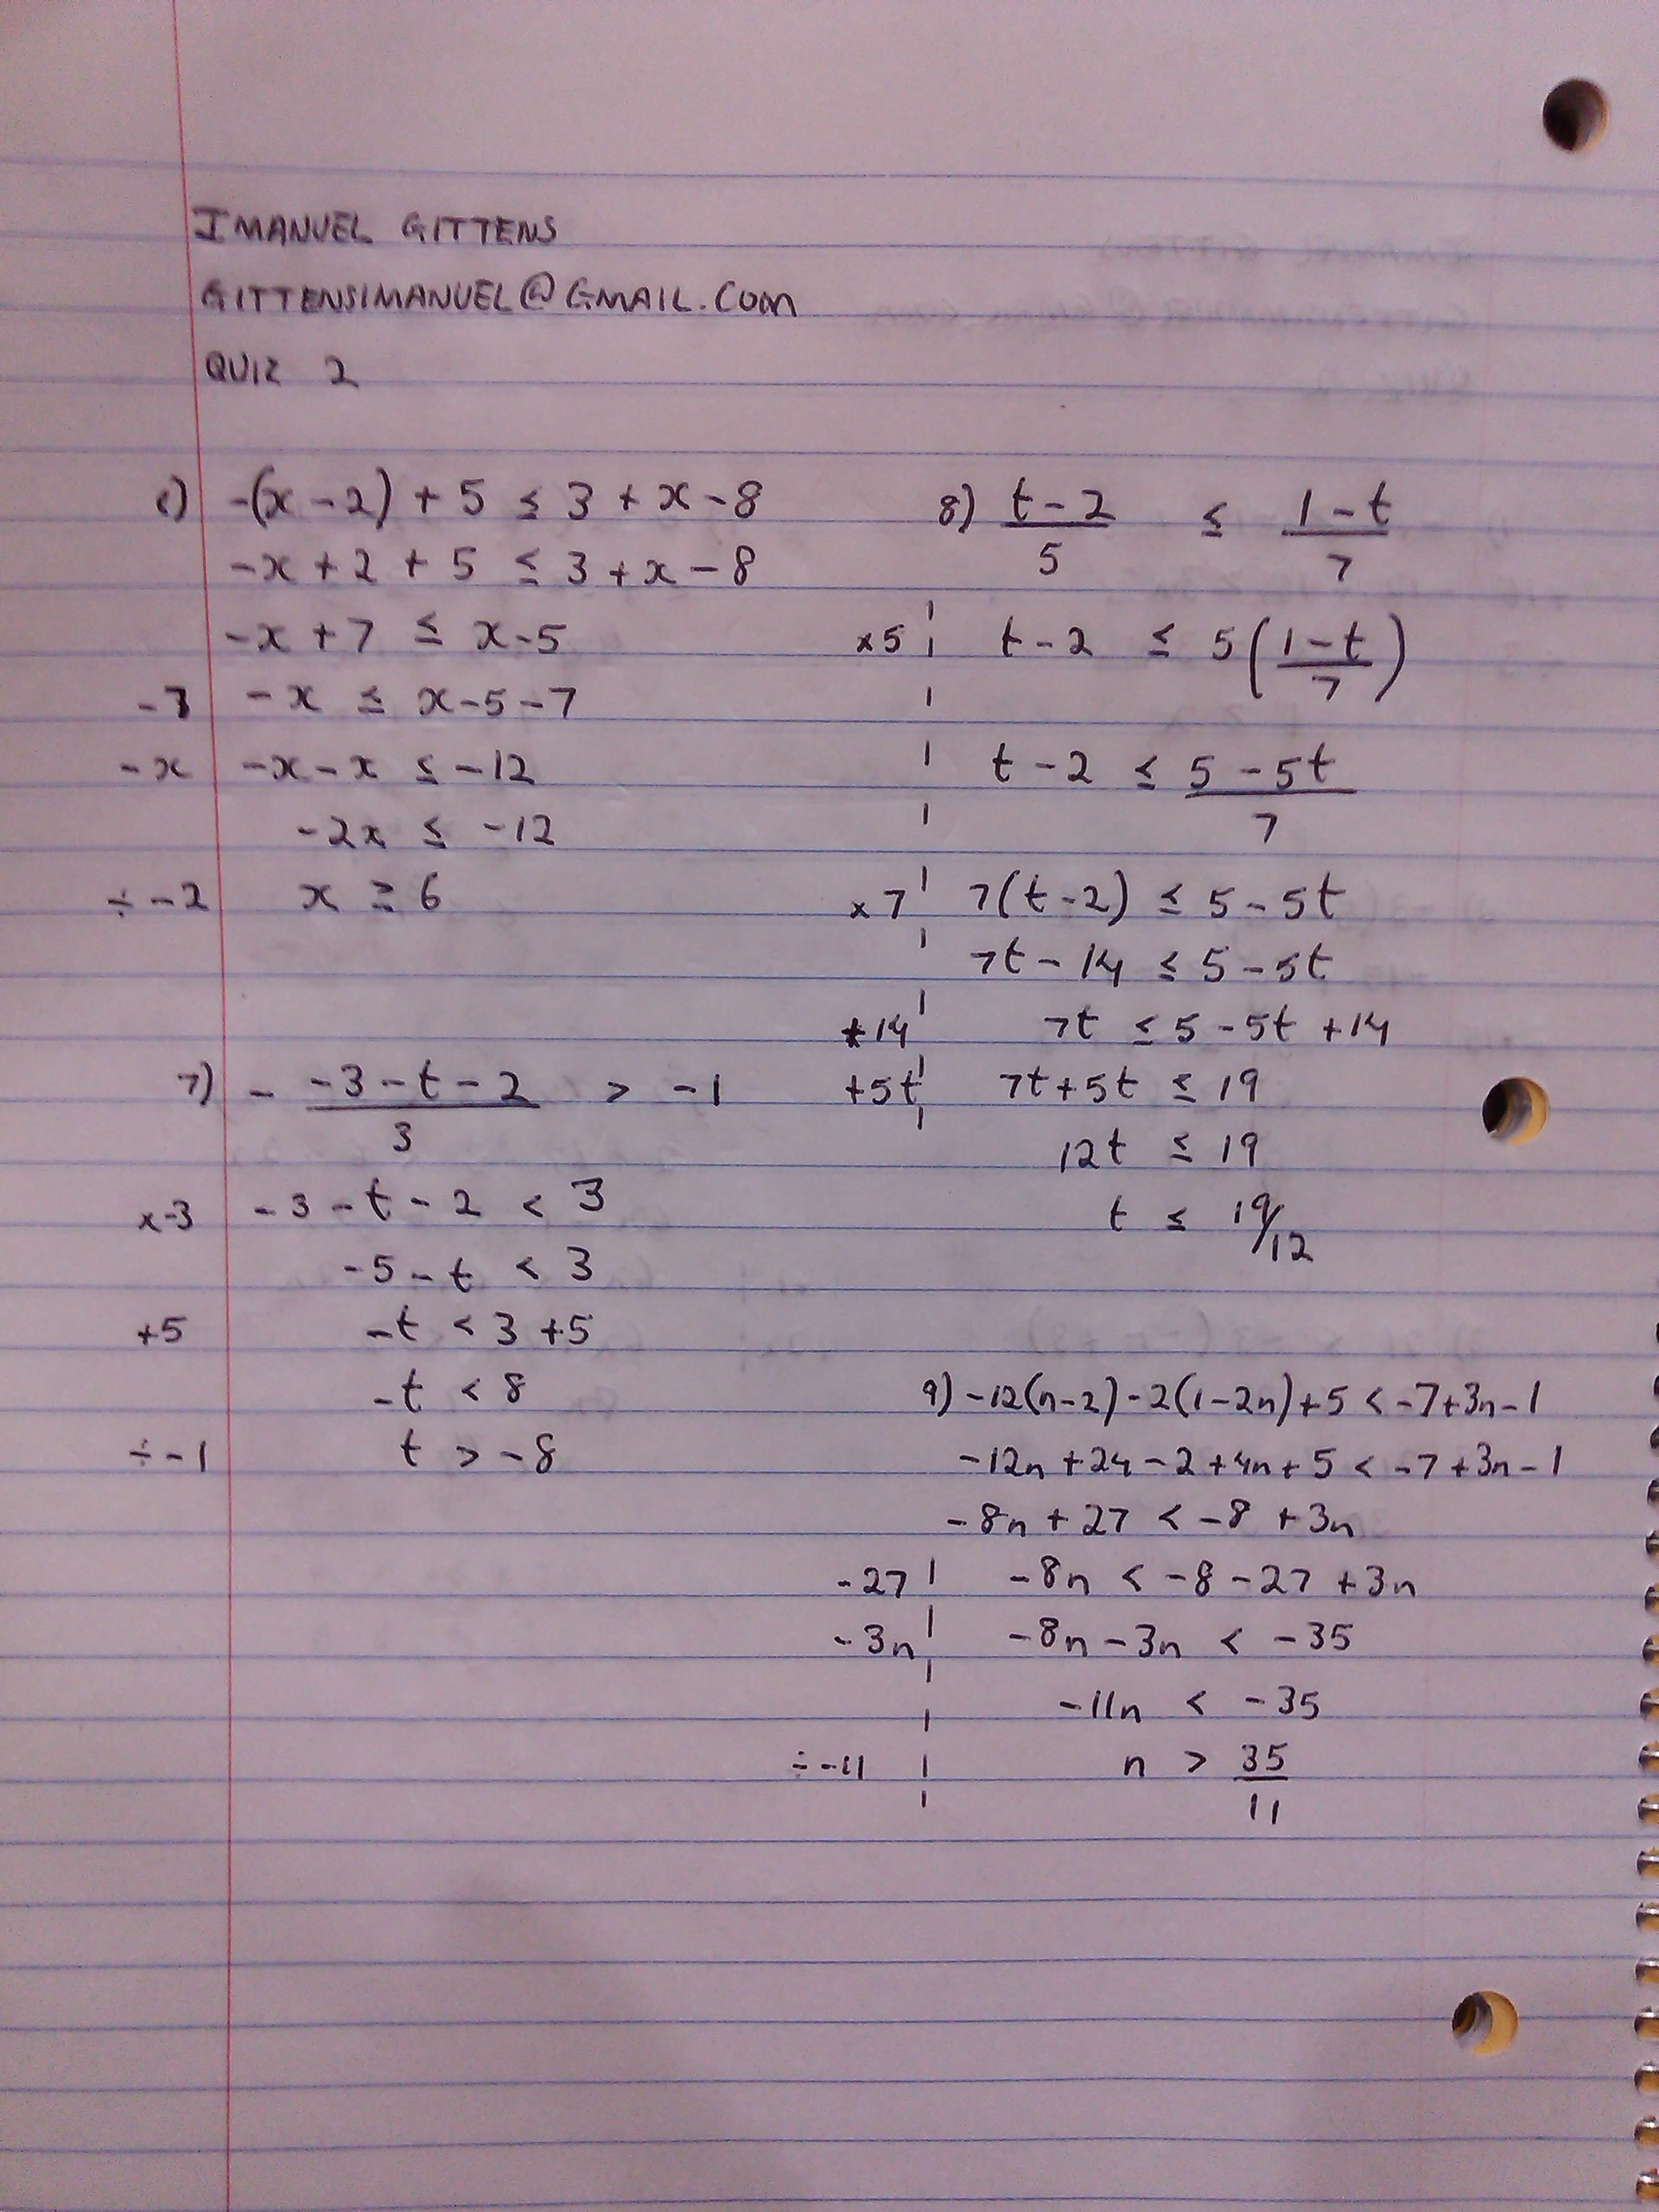 IMANUEL GITTENS
GITTENSIMANUEL@GMAIL.COM
QUIZ 2
6) -(x-2) + 5 ≤ 3 + x - 8
-x + 2 + 5 ≤ 3 + x - 8
-x + 7 ≤ x - 5
-7 -x ≤ x - 5 - 7
-x -x - x ≤ -12
-2x ≤ -12
÷ -2 x ≥ 6
7) - -3 - t - 2 / 3 > -1
x-3 -3 - t - 2 < 3
-5 - t < 3
+5 -t < 3 + 5
-t < 8
÷ -1 t > -8
8) t - 2 / 5 ≤ 1 - t / 7
x5 t - 2 ≤ 5(1 - t / 7)
t - 2 ≤ 5 - 5t / 7
x7 7(t-2) ≤ 5 - 5t
7t - 14 ≤ 5 - 5t
+14 7t ≤ 5 - 5t + 14
+5t 7t + 5t ≤ 19
12t ≤ 19
t ≤ 19/12
9) -12(n-2) - 2(1-2n) + 5 < -7 + 3n - 1
-12n + 24 - 2 + 4n + 5 < -7 + 3n - 1
-8n + 27 < -8 + 3n
-27 -8n < -8 - 27 + 3n
-3n -8n - 3n < -35
-11n < -35
÷ -11 n > 35 / 11